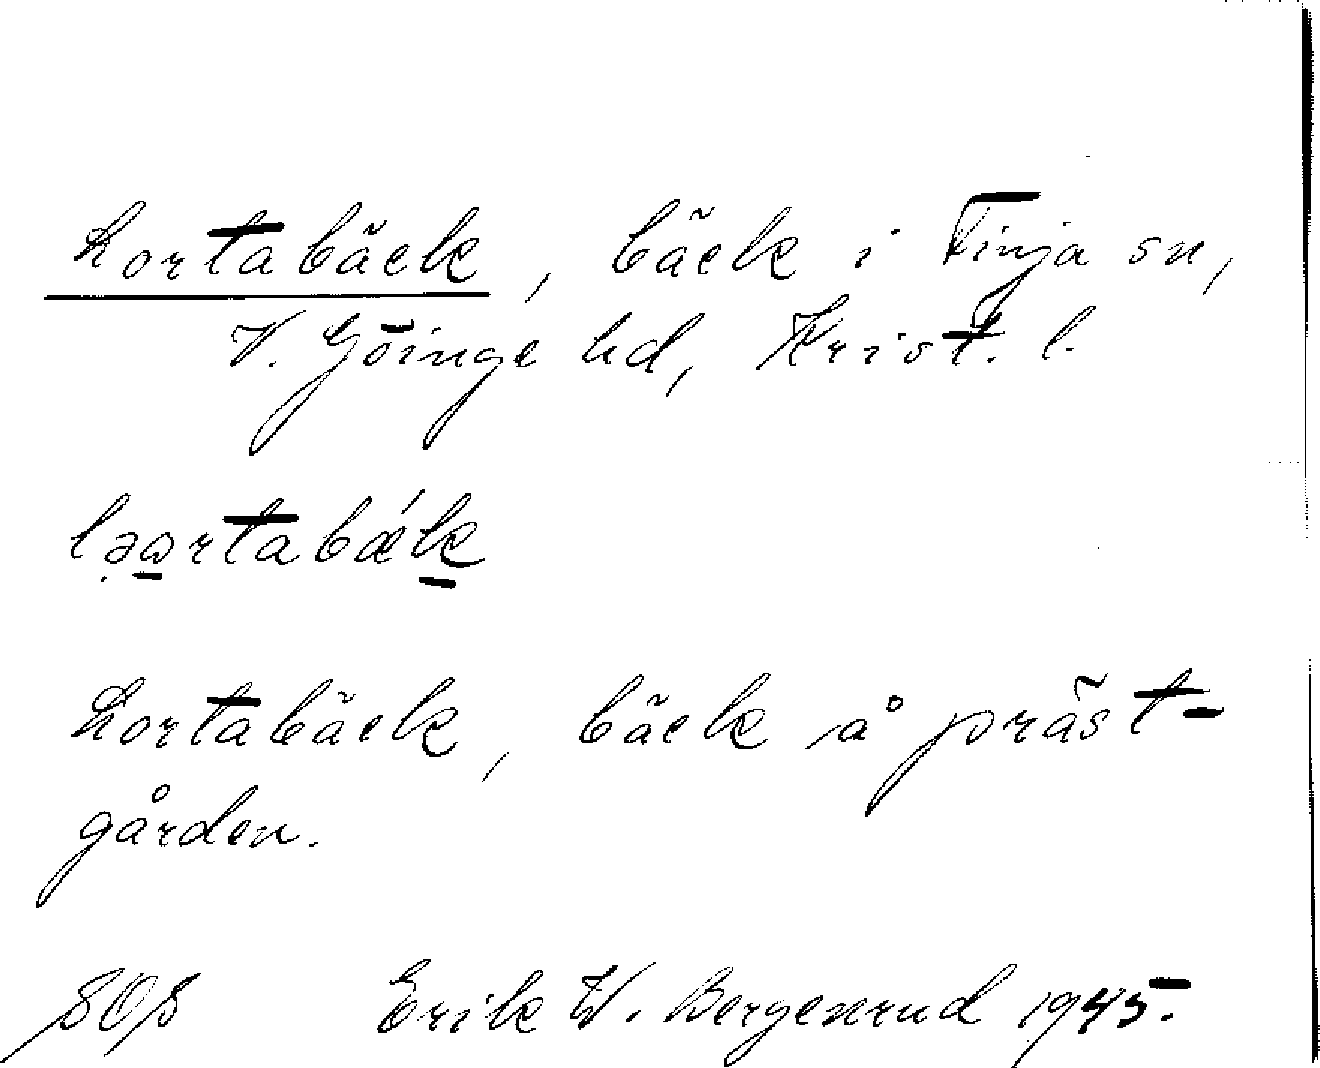 Lortabäck, bäck i Finja sn,
V. Göinge hd, Krist. l.
ləɷrtabǽk
Lortabäck, bäck å präst-
gården.
SOS Erik W. Bergenrud 1945.